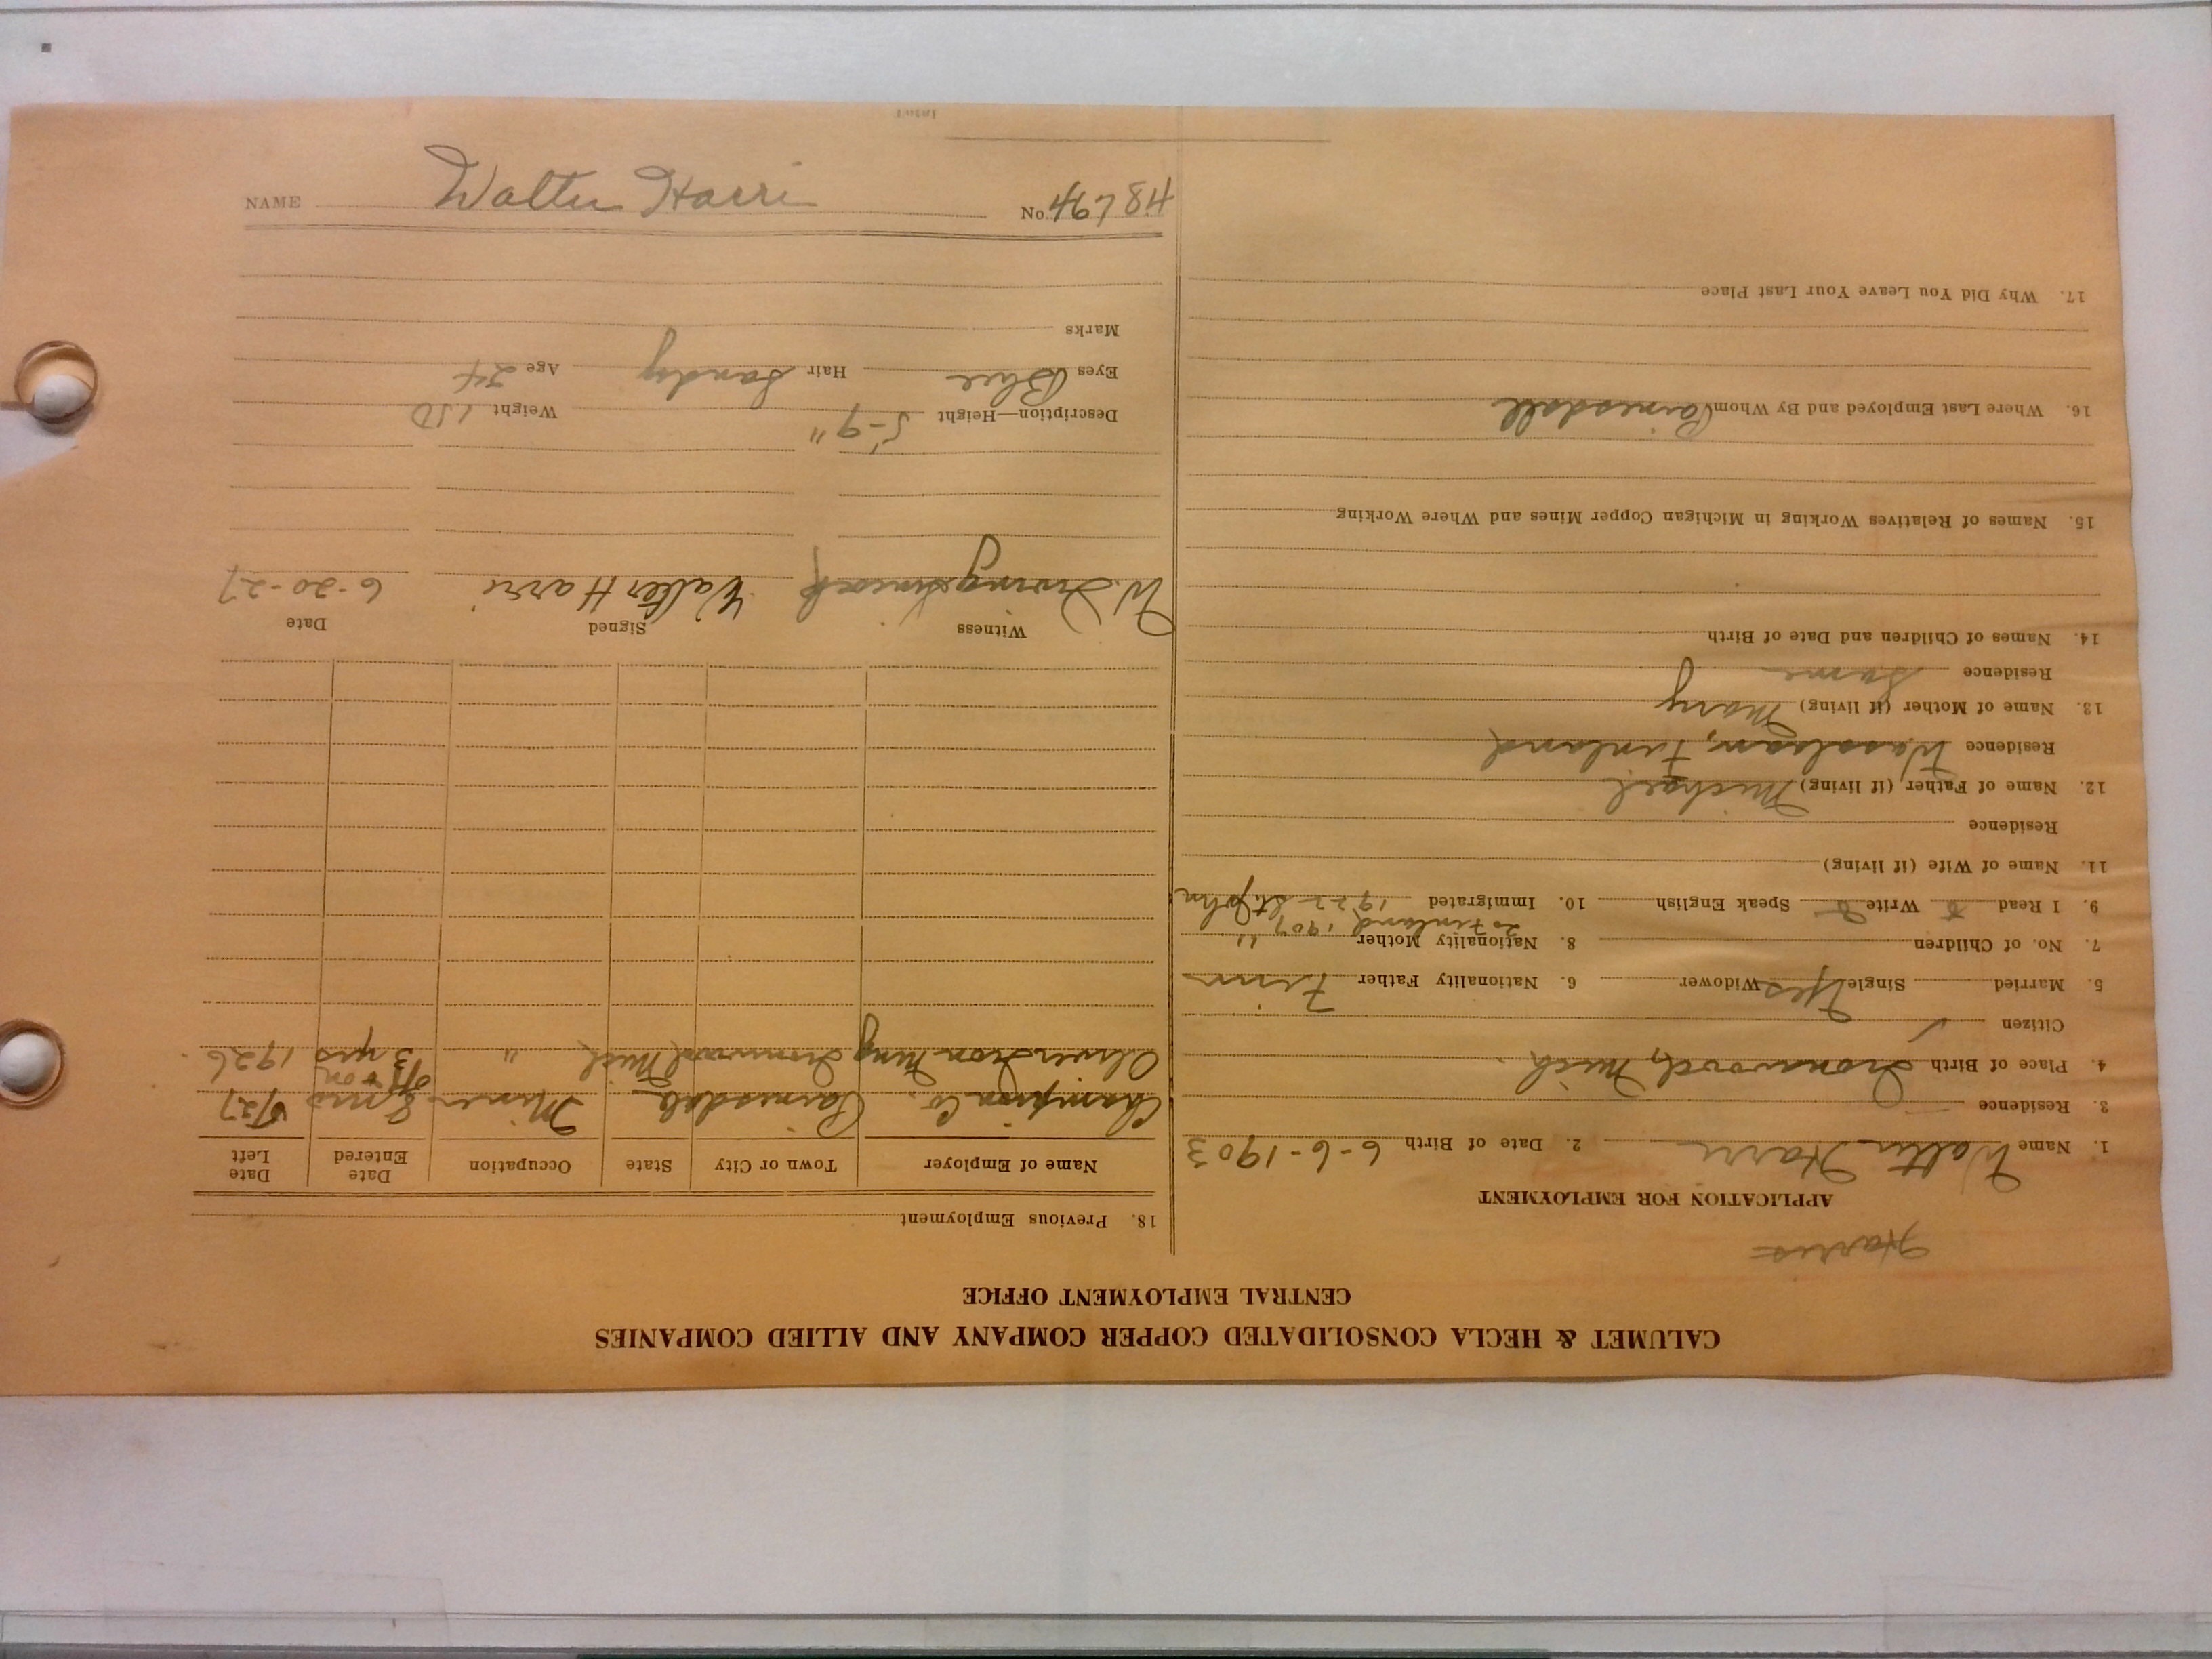 CALUMET & HECLA CONSOLIDATED COPPER COMPANY AND ALLIED COMPANIES
CENTRAL EMPLOYMENT OFFICE
Harris
APPLICATION FOR EMPLOYMENT
1. Name Walter Harri 2. Date of Birth 6-6-1903
3. Residence
4. Place of Birth Ironwood, Mich.
Citizen ✓
5. Married Single Yes Widower 6. Nationality Father Finn
7. No. of Children 8. Nationality Mother "
to Finland 1907
9. I Read Write Speak English 10. Immigrated 1922 St. John
11. Name of Wife (if living)
Residence
12. Name of Father (if living) Michael
Residence Finland
13. Name of Mother (if living) Mary
Residence Same
14. Names of Children and Date of Birth
15. Names of Relatives Working in Michigan Copper Mines and Where Working
16. Where Last Employed and By Whom Painesdale
17. Why Did You Leave Your Last Place
18. Previous Employment
Name of Employer Town or City State Occupation Date Entered Date Left
Champion Co. Painesdale Miner 8 mos 5/27
off + on
Oliver Iron Ming Ironwood Mich " 3 yrs 1926
Witness Signed Date
W. Walter Harri 6-20-27
Description—Height 5-9" Weight 150
Eyes Blue Hair Sandy Age 24
Marks
NAME Walter Harri No.